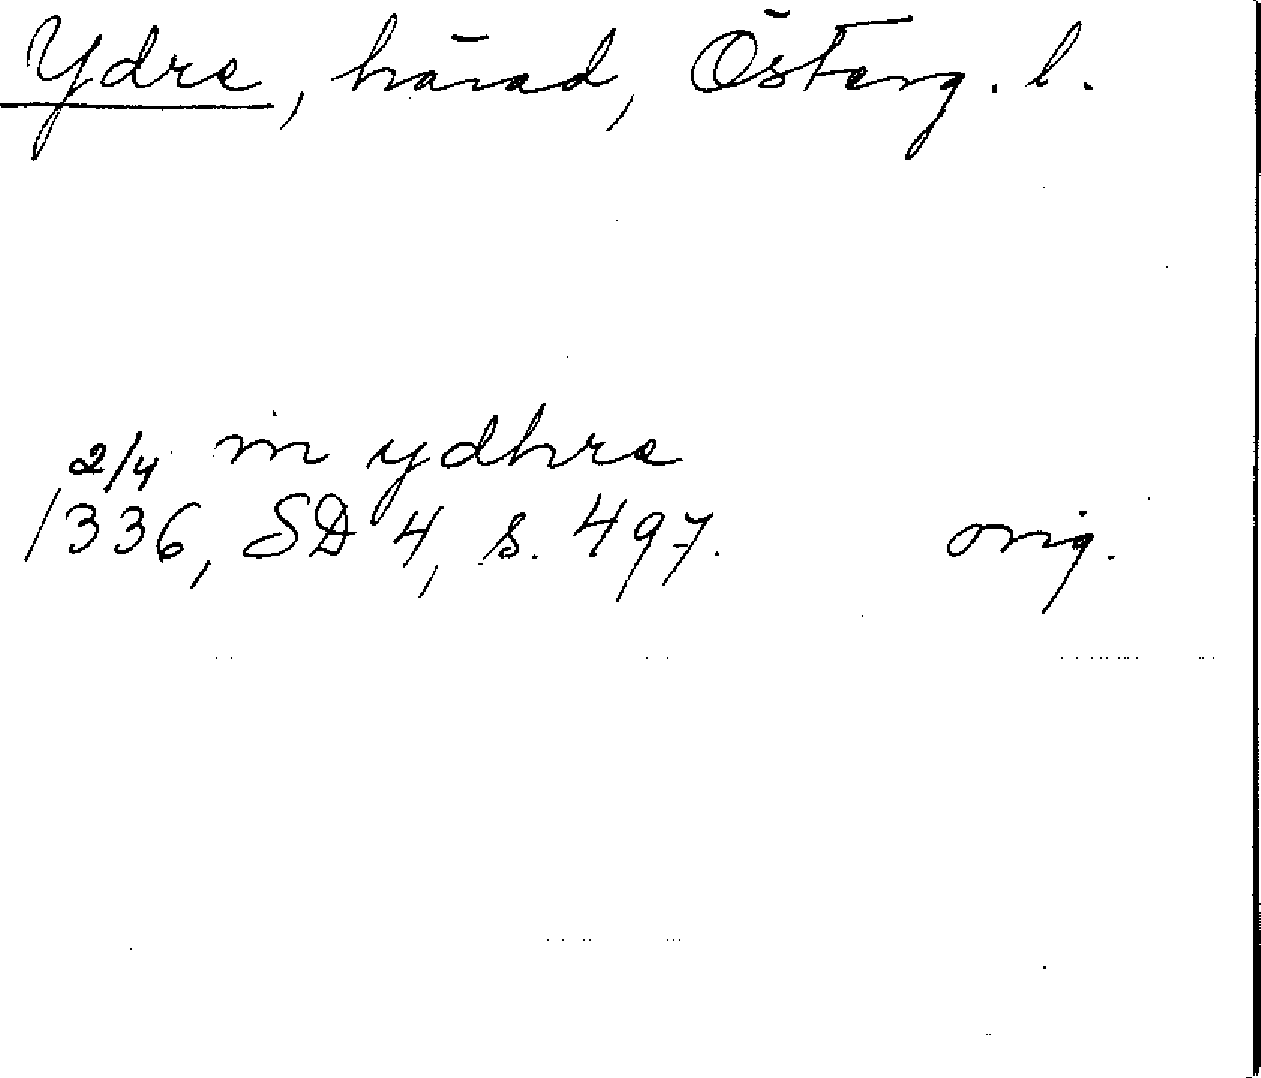 Ydre, härad, Österg. l.
2/4 in ydhre
1336, SD 4, s. 497. orig.